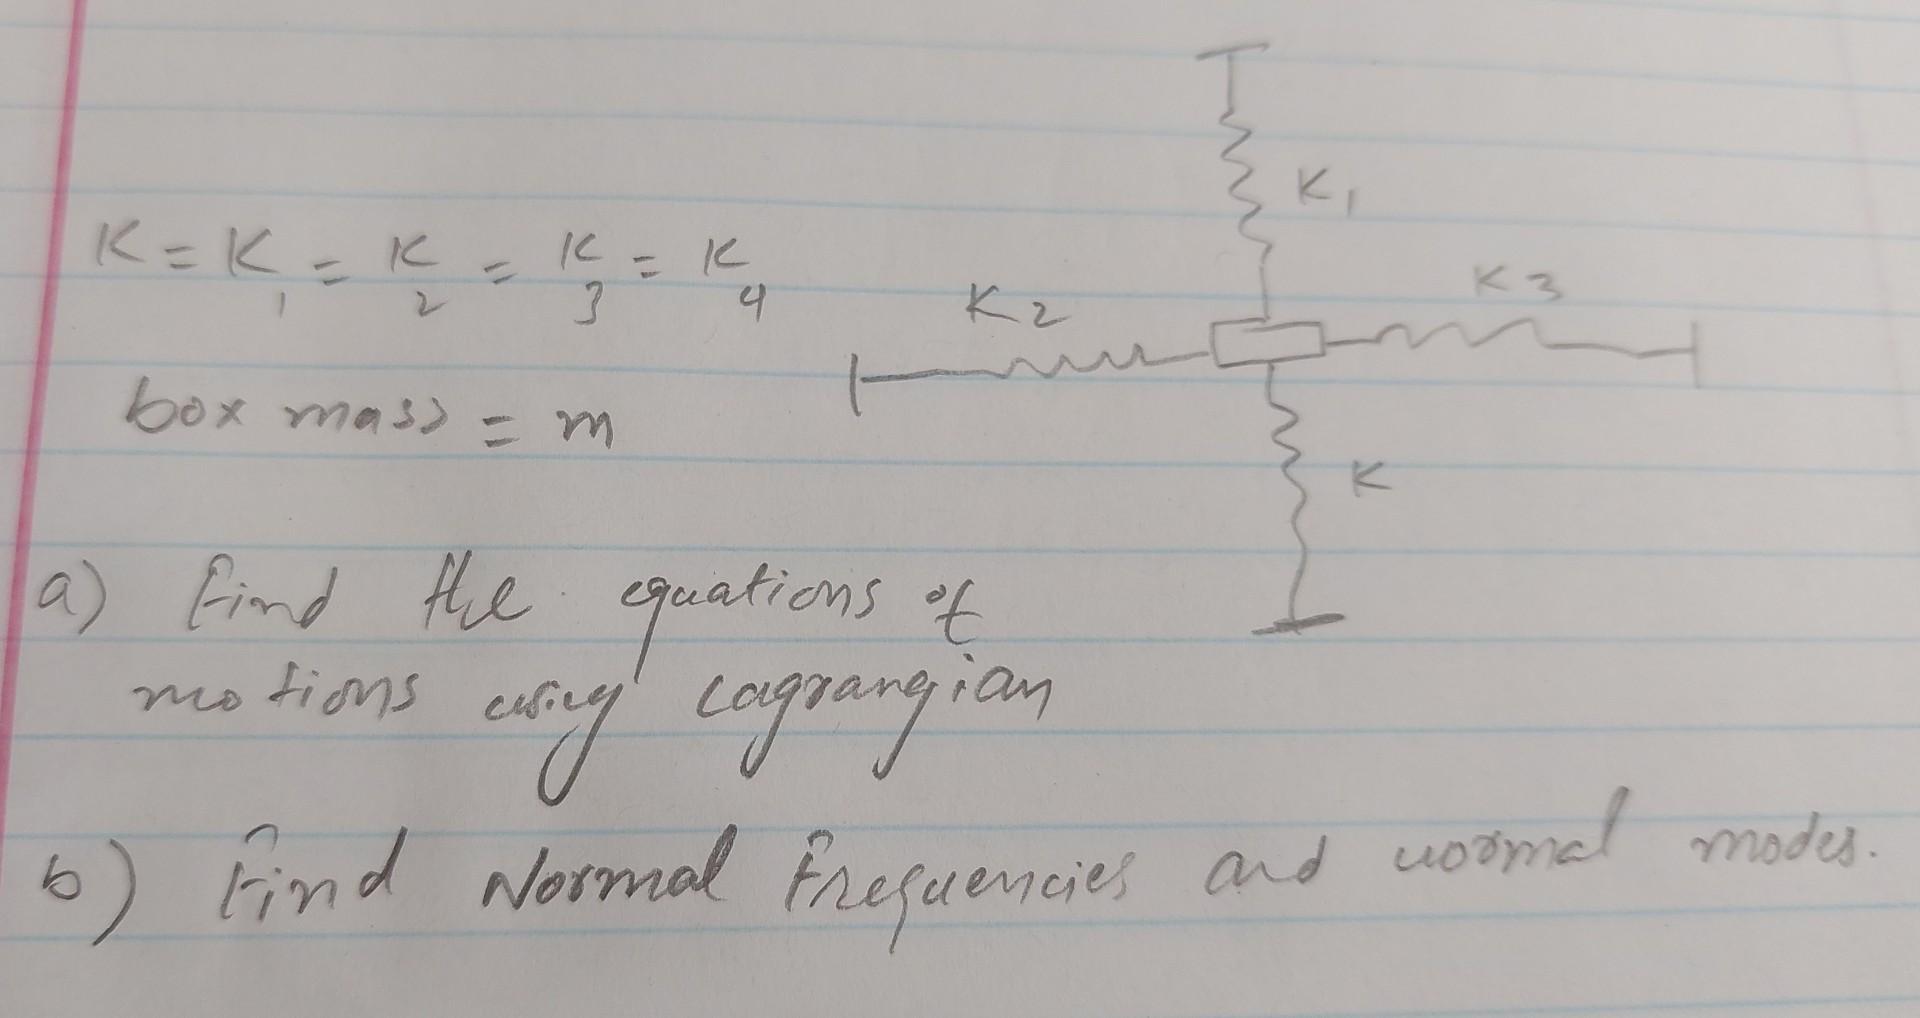 K₁
K = K₁ = K₂ = K₃ = K₄
K₂
K3
box mass = m
K
a) Find the equations of
motions using Lagrangian
b) Find Normal Frequencies and normal modes.